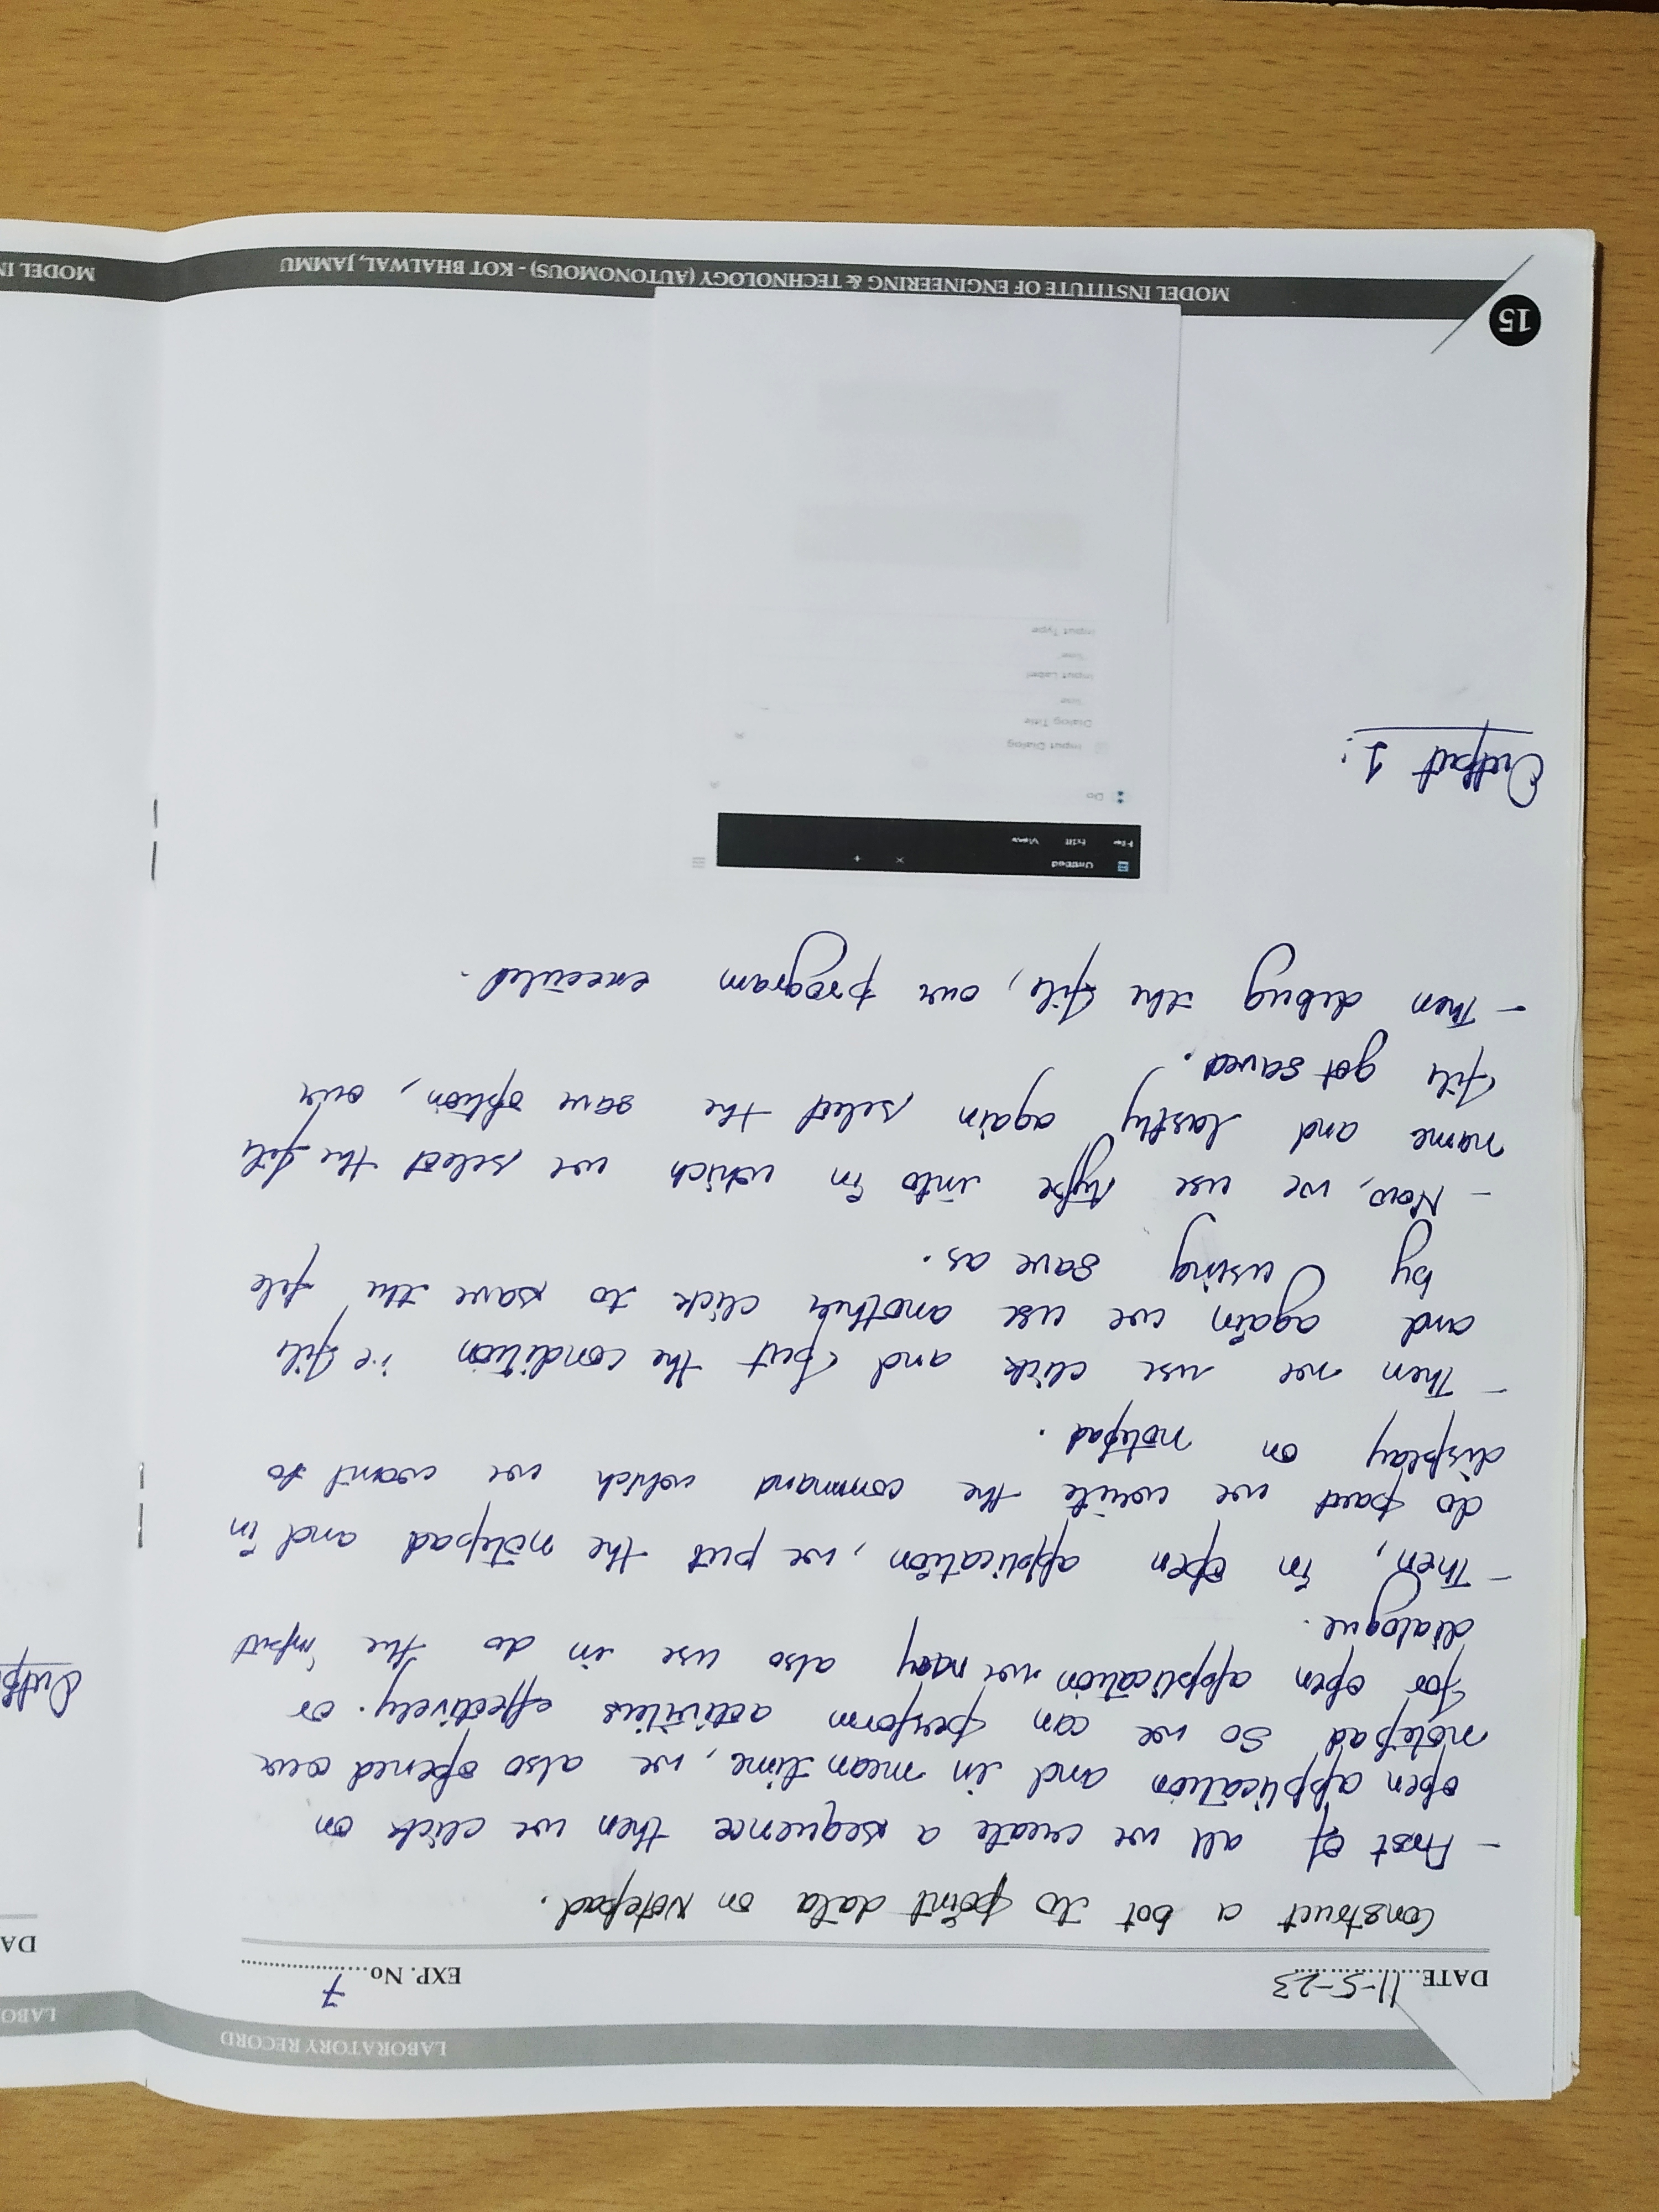 LABORATORY RECORD
DATE 11-5-23
EXP. No. 7
Construct a bot to point data on Notepad.
- First of all we create a sequence then we click on
open application and in mean time, we also opened our
notepad so we can perform activities effectively. or
for open application we may also use in do the input
dialogue.
- Then, in open application, we put the notepad and in
do part we write the command which we want to
display on notepad.
- Then we use click and put the condition i.e file
and again we use another click to save the file
by using save as.
- Now, we use type into in which we select the file
name and lastly again select the save option, our
file got saved.
- Then debug the file, our program executed.
Untitled × +
File Edit View
Do
Input Dialog
Dialog Title
Input Label
Input Type
Output 1:
15
MODEL INSTITUTE OF ENGINEERING & TECHNOLOGY (AUTONOMOUS) - KOT BHALWAL, JAMMU
LABO
DA
Outp
MODEL IN